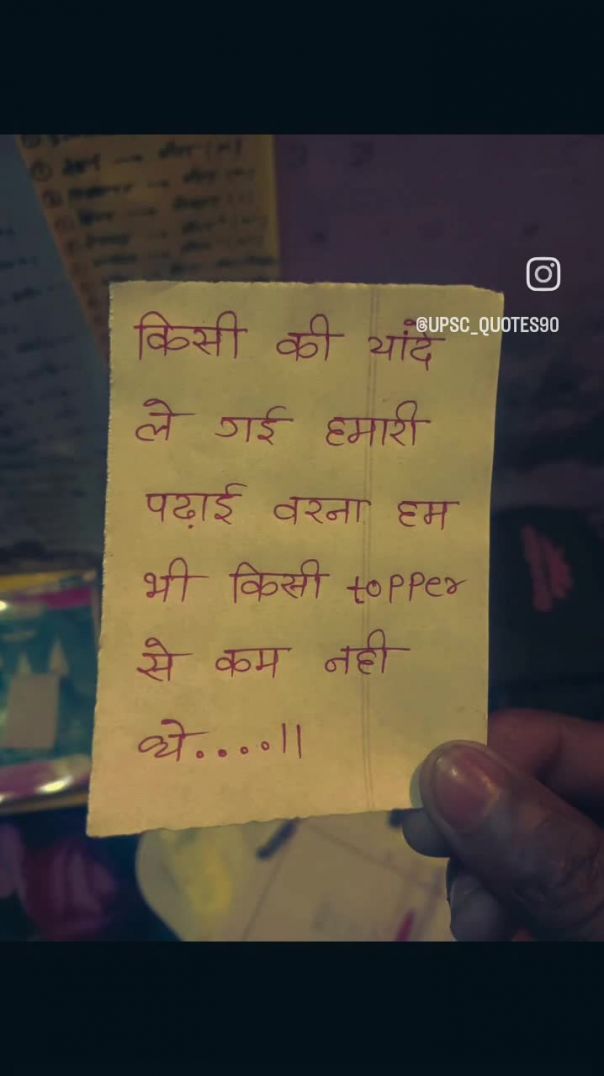 @UPSC_QUOTES90
किसी की यांदे
ले गई हमारी
पढ़ाई वरना हम
भी किसी topper
से कम नही
थे....॥